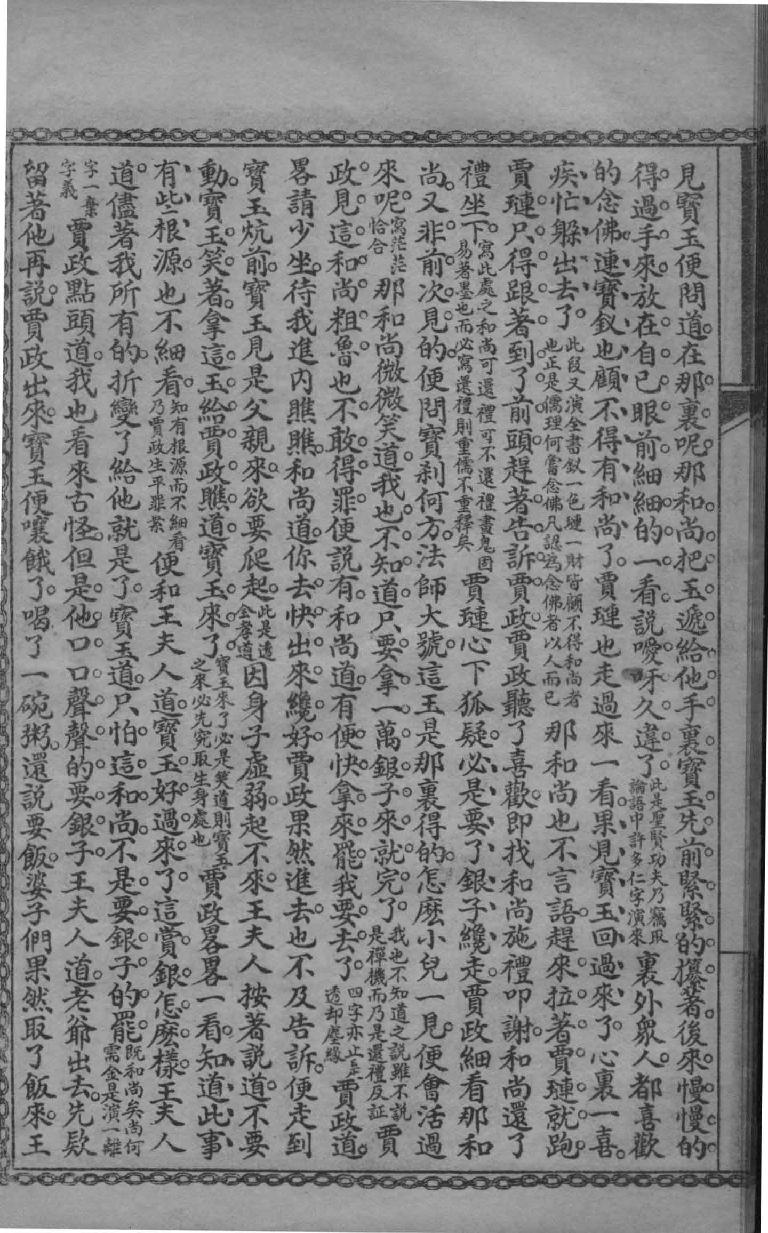 見寶玉便問道在那裏呢那和尚把玉遞給他手裏寶玉先前緊緊的攥著後來慢慢的
得過手來放在自己眼前細細的一看說噯呀久違了此是聖賢功夫乃竊取論語中許多仁字演來裏外衆人都喜歡
的念佛連寶釵也顧不得有和尚了賈璉也走過來一看果見寶玉回過來了心裏一喜
疾忙躲出去了此段又演全書釵一色璉一財皆顧不得和尚者也正是儒理何嘗念佛凡認爲念佛者以人而已那和尚也不言語趕來拉著賈璉就跑
賈璉只得跟著到了前頭趕著告訴賈政賈政聽了喜歡即找和尚施禮叩謝和尚還了
禮坐下寫此處之和尚可還禮可不還禮書鬼固易著墨也而必寫還禮則重儒不重釋矣賈璉心下狐疑必是要了銀子纔走賈政細看那和
尚又非前次見的便問寶刹何方法師大號這玉是那裏得的怎麽小兒一見便會活過
來呢寫茫茫恰合那和尚微微笑道我也不知道只要拿一萬銀子來就完了我也不知道之說雖不說是禪機而乃是還禮反証賈
政見這和尚粗魯也不敢得罪便説有和尚道有便快拿來罷我要去了四字亦止是透却塵緣賈政道
畧請少坐待我進内瞧瞧和尚道你去快出來纔好賈政果然進去也不及告訴便走到
寶玉炕前寶玉見是父親來欲要爬起此是透金孝道因身子虛弱起不來王夫人按著說道不要
動寶玉笑著拿這玉給賈政瞧道寶玉來了寶玉來了必是笑道則寶玉之來必先究取生身處也賈政畧畧一看知道此事
有些根源也不細看知有根源而不細看乃賈政生平罪案便和王夫人道寶玉好過來了這賞銀怎麽樣王夫人
道儘著我所有的折變了給他就是了寶玉道只怕這和尚不是要銀子的罷既和尚矣尚何需金是演一離
字一棄字義賈政點頭道我也看來古怪但是他口口聲聲的要銀子王夫人道老爺出去先欵
留著他再説賈政出來寶玉便嚷餓了喝了一碗粥還説要飯婆子們果然取了飯來王